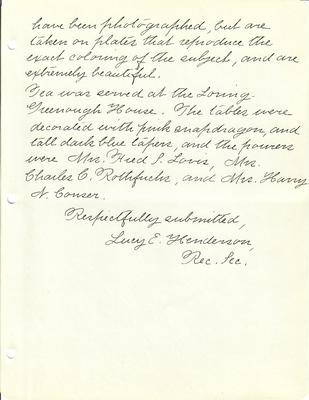 have been photographed, but are
taken on plates that reproduce the
exact coloring of the subject, and are
extremely beautiful.
Tea was served at the Loring-
Greenough House. The tables were
decorated with pink snapdragon, and
tall dark blue tapers, and the pourers
were Mrs. Fred S. Mrs.
Charles C. Rothfuchs, and Mrs. Harry
N. Conser.
Respectfully submitted,
Lucy E. Henderson,
Rec. Sec.